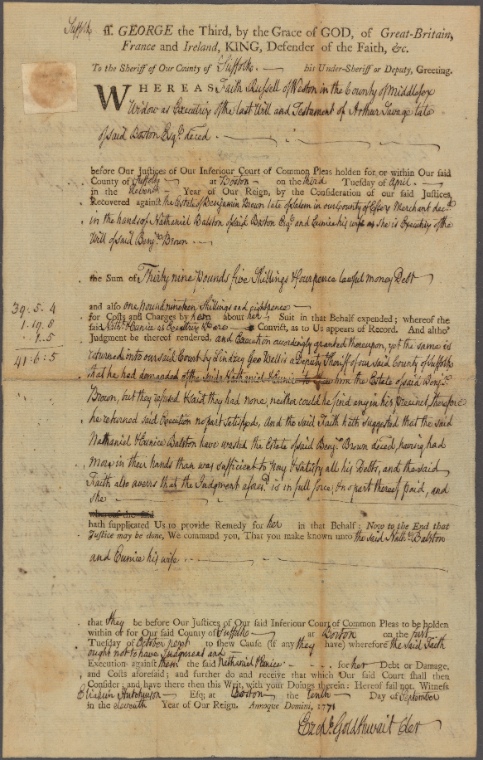 Suffolk ſſ. GEORGE the Third, by the Grace of GOD, of Great-Britain,
France and Ireland, KING, Defender of the Faith, &c.
To the Sheriff of Our County of Suffolk his Under-Sheriff or Deputy, Greeting.
WHEREAS Faith Russell of Weston in the County of Middlesex
Widow as Executrix of the last Will and Testament of Arthur Savage late
of said Boston Esqr. deced
before Our Justices of Our Inferiour Court of Common Pleas holden for or within Our said
County of Suffolk at Boston on the third Tuesday of April
in the Year of Our Reign, by the Consideration of our said Justices,
Recovered against the Estate of Benjamin Brown late of Salem in our County of Essex Merchant deced
in the hands of Nathaniel Balston of said Boston Esqr. and Eunice his wife as she is Executrix of the
Will of said Benja. Brown
the Sum of Thirty nine Pounds five Shillings & four pence lawful money Debt
and also one pound nineteen Shillings and eight pence
39. 5. 4
for Costs and Charges by her about her Suit in that Behalf expended; whereof the
1. 19. 8
said Nathl. & Eunice as Executrix Convict, as to Us appears of Record. And altho'
. 1. 5
Judgment be thereof rendered, and Execution accordingly granted thereupon, yet the same is
41. 6. 5
returned into our said Court by Geo Wells a Deputy Sheriff of our said County of Suffolk
that he had demanded of the said Nathaniel & Eunice him the Estate of said Benja.
Brown, but they refused & said they had none, neither could he find any in his Precinct therefore
he returned said Execution no part satisfied, and the said Faith hath suggested that the said
Nathaniel & Eunice Balston have wasted the Estate of said Benja. Brown deced, having had
more in their hands than was sufficient to pay & satisfy all his Debts, and the said
Faith also avers that the Judgment aforesd. is in full force, & no part thereof paid, and
she
whereof the said
hath supplicated Us to provide Remedy for her in that Behalf; Now to the End that
Justice may be done, We command you, That you make known unto the said Nathl. Balston
and Eunice his wife
that they be before Our Justices of Our said Inferiour Court of Common Pleas to be holden
within or for Our said County of Suffolk at Boston on the first
Tuesday of October next to shew Cause (if any they have) wherefore the said Faith
ought not to have Judgment and
Execution against them the said Nathaniel & Eunice for her Debt or Damage,
and Costs aforesaid; and further do and receive that which Our said Court shall then
Consider; and have there then this Writ, with your Doings therein: Hereof fail not. Witness
Hutchinson Esq; at Boston the tenth Day of September
in the eleventh Year of Our Reign. Annoque Domini, 1771
Ezekl. Goldthwait Cler